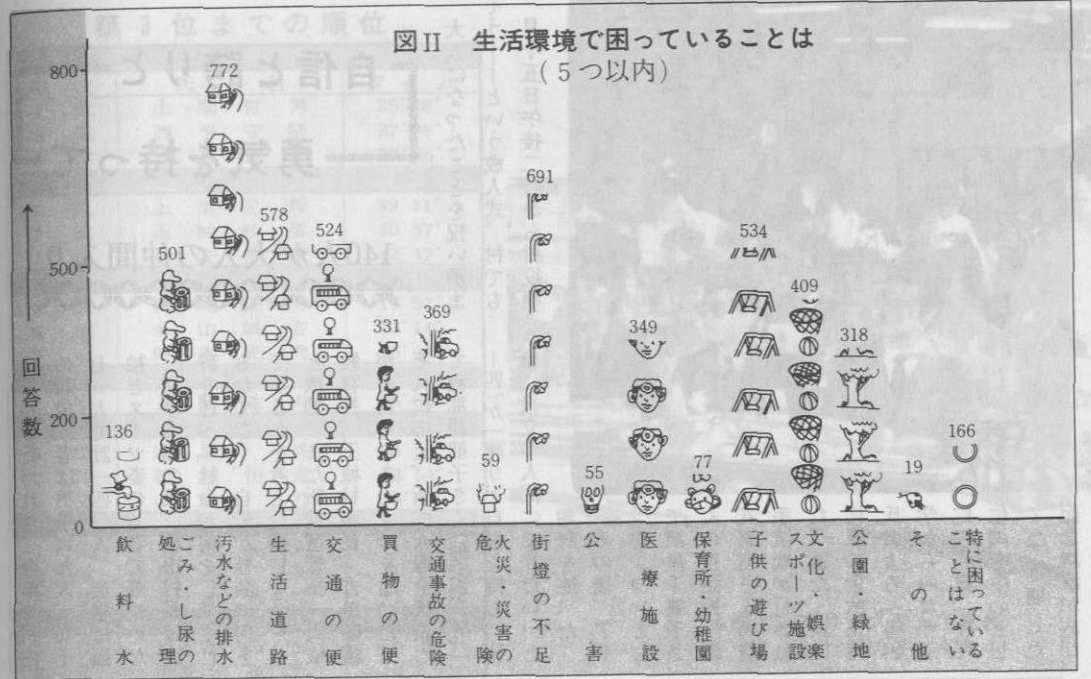 図II 生活環境で困っていることは
(5つ以内)
800
500
200
0
回答数
136
501
772
578
524
331
369
59
691
55
349
77
534
409
318
19
166
飲料水
ごみ・し尿の
処理
汚水などの排水
生活道路
交通の便
買物の便
交通事故の危険
火災・災害の
危険
街燈の不足
公害
医療施設
保育所・幼稚園
子供の遊び場
文化・娯楽
スポーツ施設
公園・緑地
その他
特に困っている
ことはない
自信と誇りと
勇気を持って